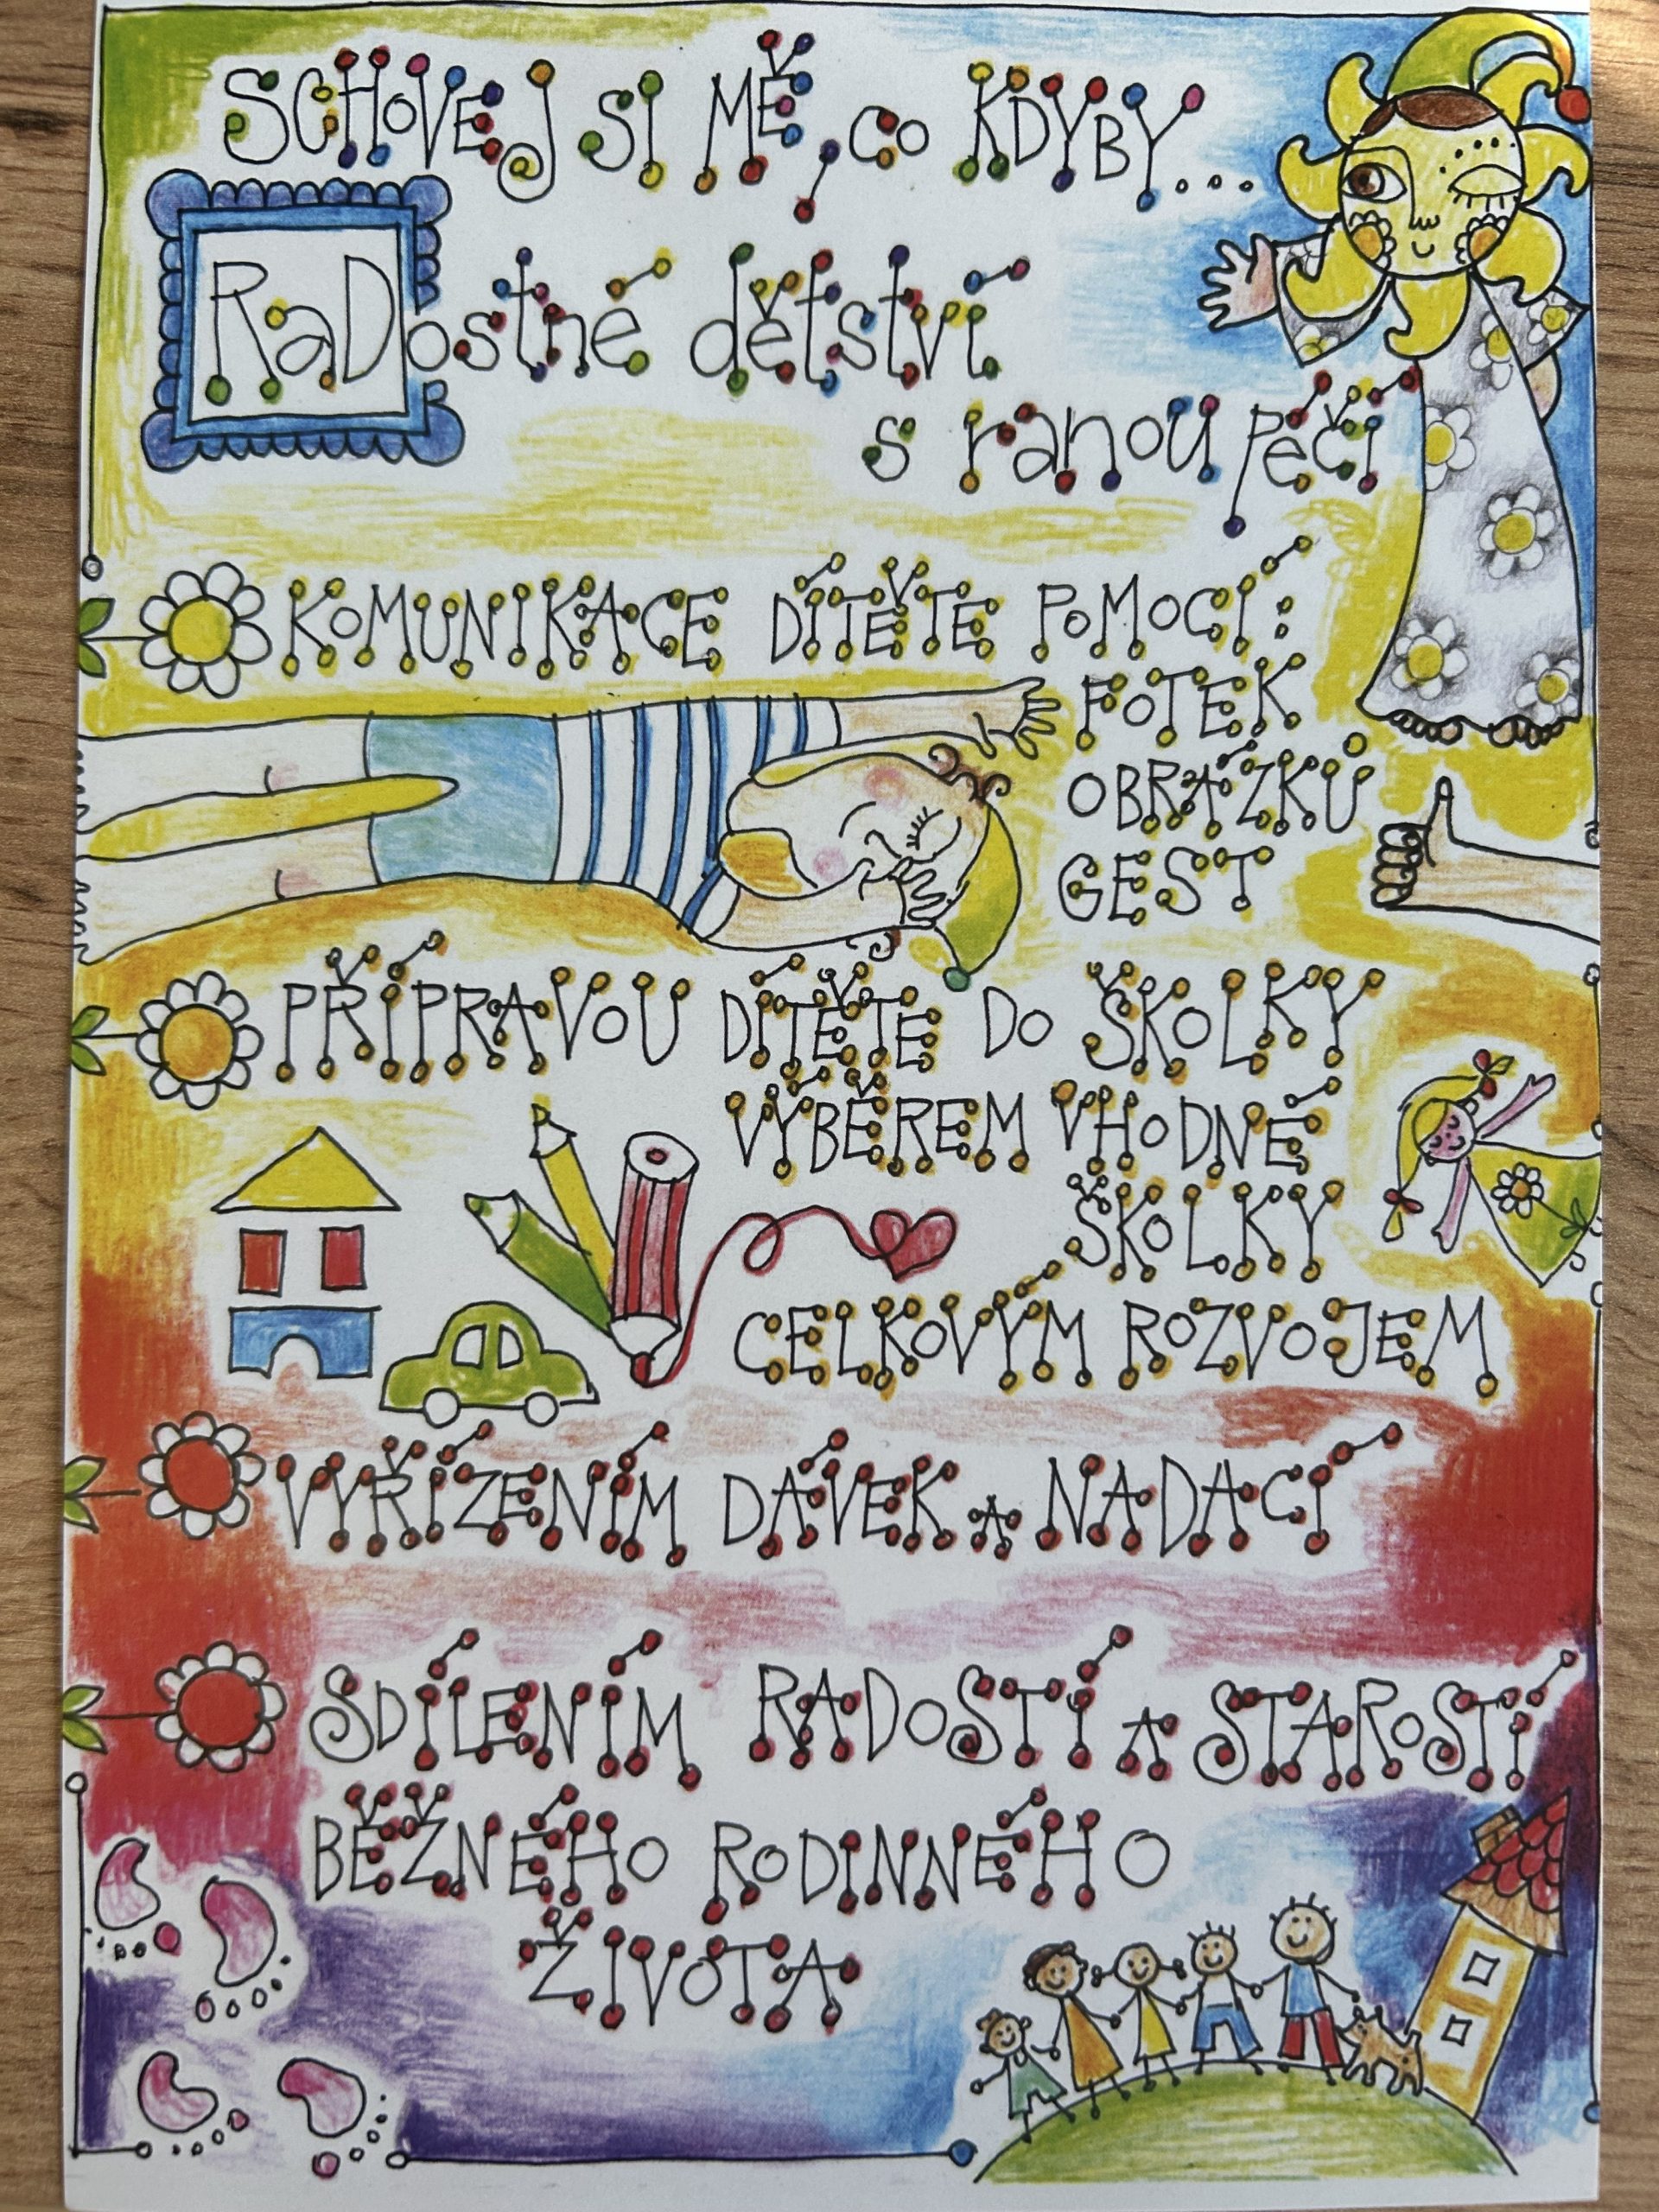 SCHOVEJ SI MĚ, CO KDYBY...
RaDostné dětství
s ranou péčí
KOMUNIKACE DÍTĚTE POMOCÍ:
FOTEK
OBRÁZKŮ
GEST
PŘÍPRAVOU DÍTĚTE DO ŠKOLKY
VÝBĚREM VHODNÉ
ŠKOLKY
CELKOVÝM ROZVOJEM
VYŘÍZENÍM DÁVEK A NADACÍ
SDÍLENÍM RADOSTÍ A STAROSTÍ
BĚŽNÉHO RODINNÉHO
ŽIVOTA